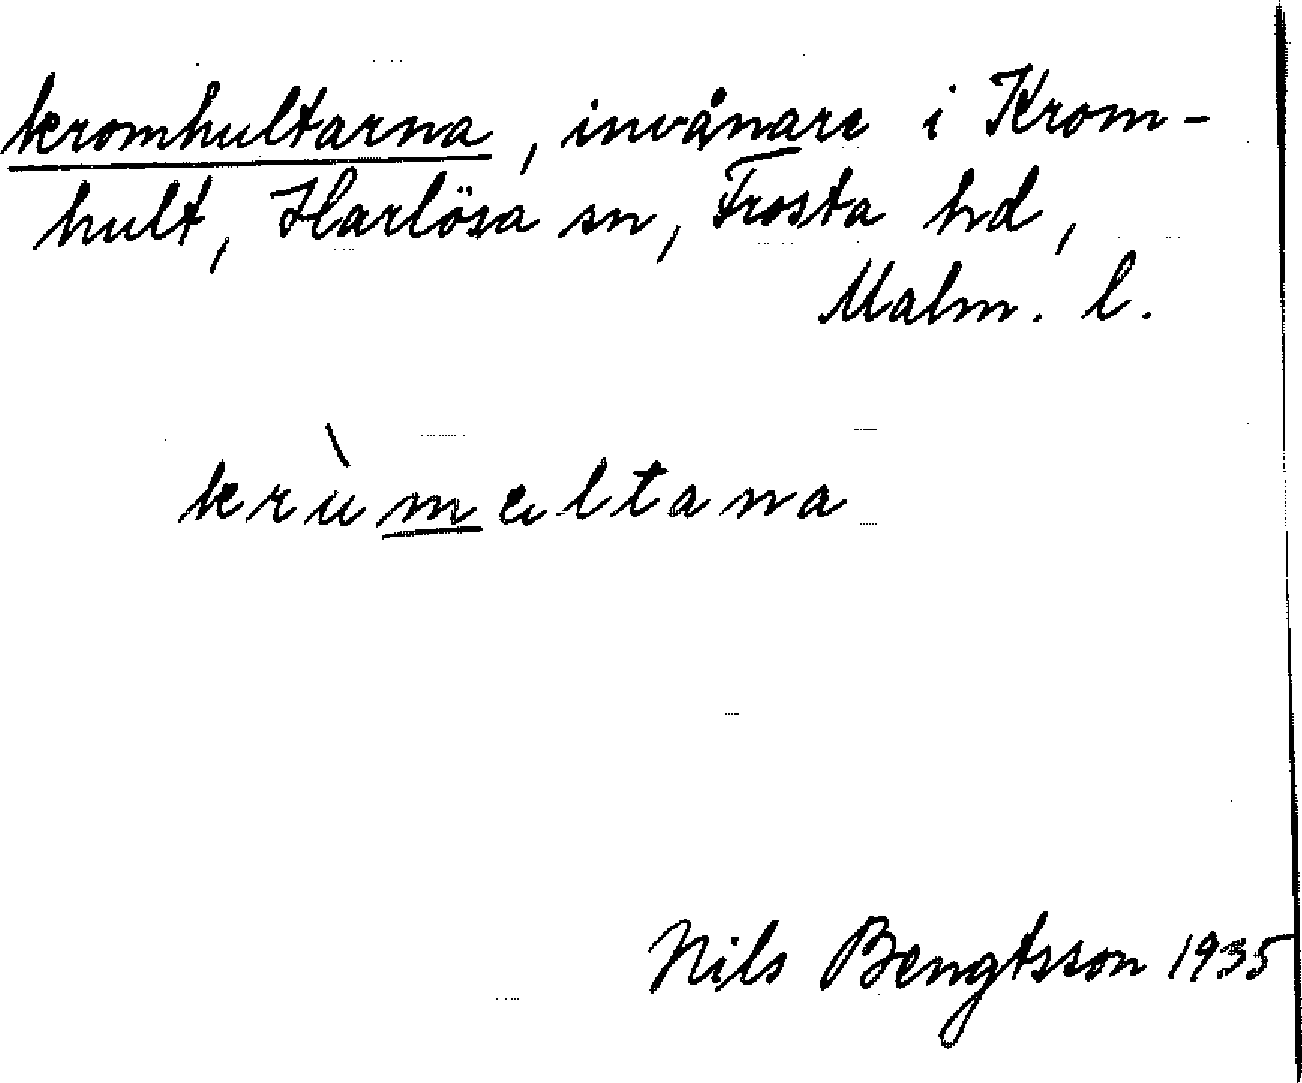 kromhultarna, invånare i Krom-
hult, Harlösa sn, Frosta hd,
Malm. l.
krùmeltana
Nils Bengtsson 1935